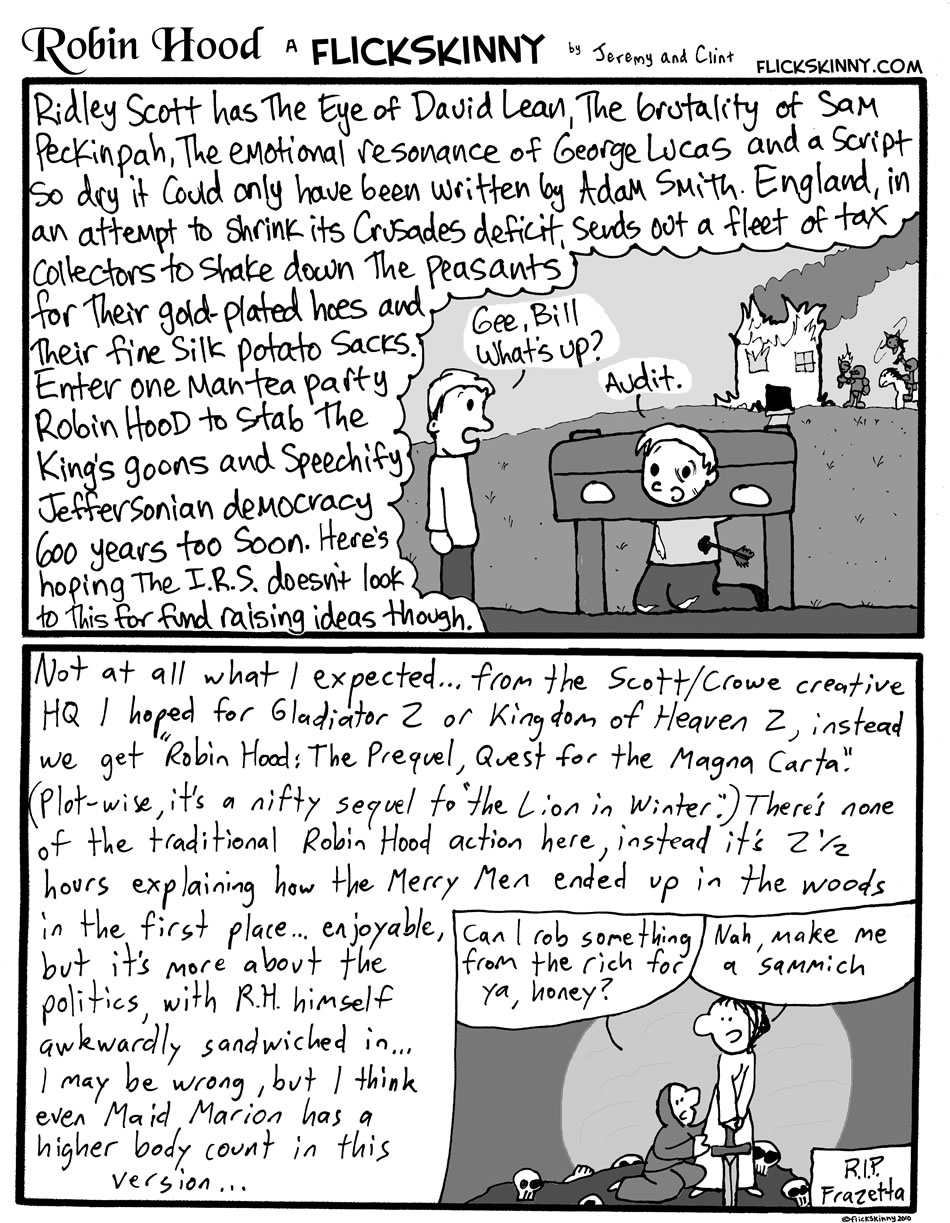 Robin Hood A FLICKSKINNY by Jeremy and Clint FLICKSKINNY.COM
Ridley Scott has The Eye of David Lean, The brutality of Sam
Peckinpah, The emotional resonance of George Lucas and a Script
So dry it Could only have been written by Adam Smith. England, in
an attempt to shrink its Crusades deficit, sends out a fleet of tax
collectors to shake down The peasants
for Their gold-plated hoes and
Their fine Silk potato sacks.
Enter one man tea party
Robin Hood to Stab The
King's goons and Speechify
Jeffersonian democracy
600 years too soon. Here's
hoping The I.R.S. doesn't look
to This for fund raising ideas though.
Gee, Bill
What's up?
Audit.
Not at all what I expected... from the Scott/Crowe creative
HQ I hoped for Gladiator 2 or Kingdom of Heaven 2, instead
we get "Robin Hood: The Prequel, Quest for the Magna Carta".
(Plot-wise, it's a nifty sequel to "the Lion in Winter".) There's none
of the traditional Robin Hood action here, instead it's 2 1/2
hours explaining how the Merry Men ended up in the woods
in the first place... enjoyable,
but it's more about the
politics, with R.H. himself
awkwardly sandwiched in...
I may be wrong, but I think
even Maid Marion has a
higher body count in this
version...
Can I rob something
from the rich for
ya, honey?
Nah, make me
a sammich
R.I.P.
Frazetta
©flickskinny 2010